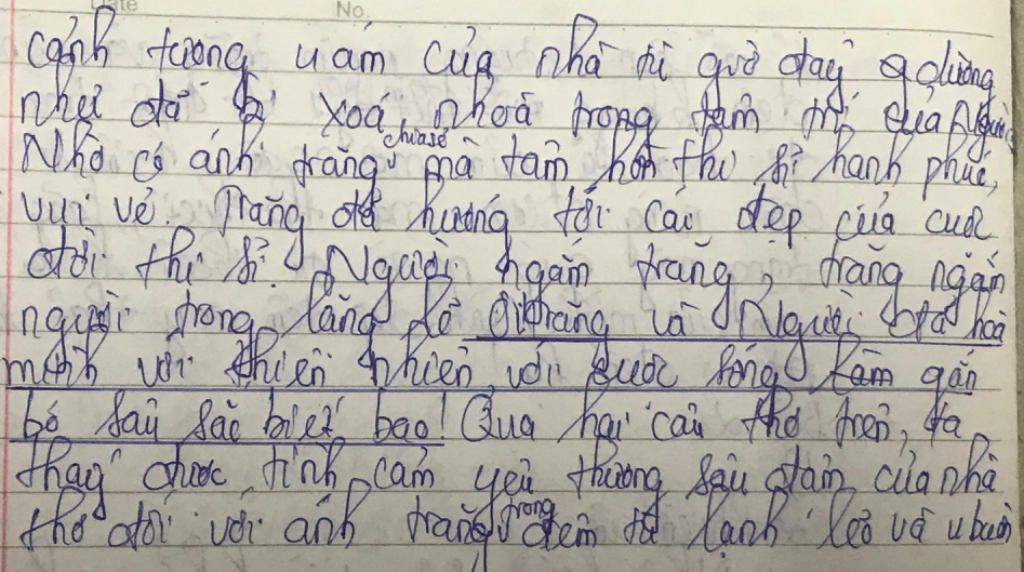 No.
cảnh tượng u ám của nhà tù giờ đây
như đã bị xoá nhoà trong tâm trí của Người
Nhờ có ánh trăng chia sẻ mà tâm hồn thi sĩ hạnh phúc,
vui vẻ. Trăng đã hướng tới cái đẹp của cuộc
đời thi sĩ. Người ngắm trăng, trăng ngắm
người trong lặng lẽ Ôi trăng và Người đã hoà
mình với thiên nhiên, với cuộc sống làm gắn
bó sâu sắc biết bao! Qua hai câu thơ trên, ta
thấy được tình cảm yêu thương sâu đậm của nhà
thơ đối với ánh trăng trong đêm tù lạnh lẽo và u buồn